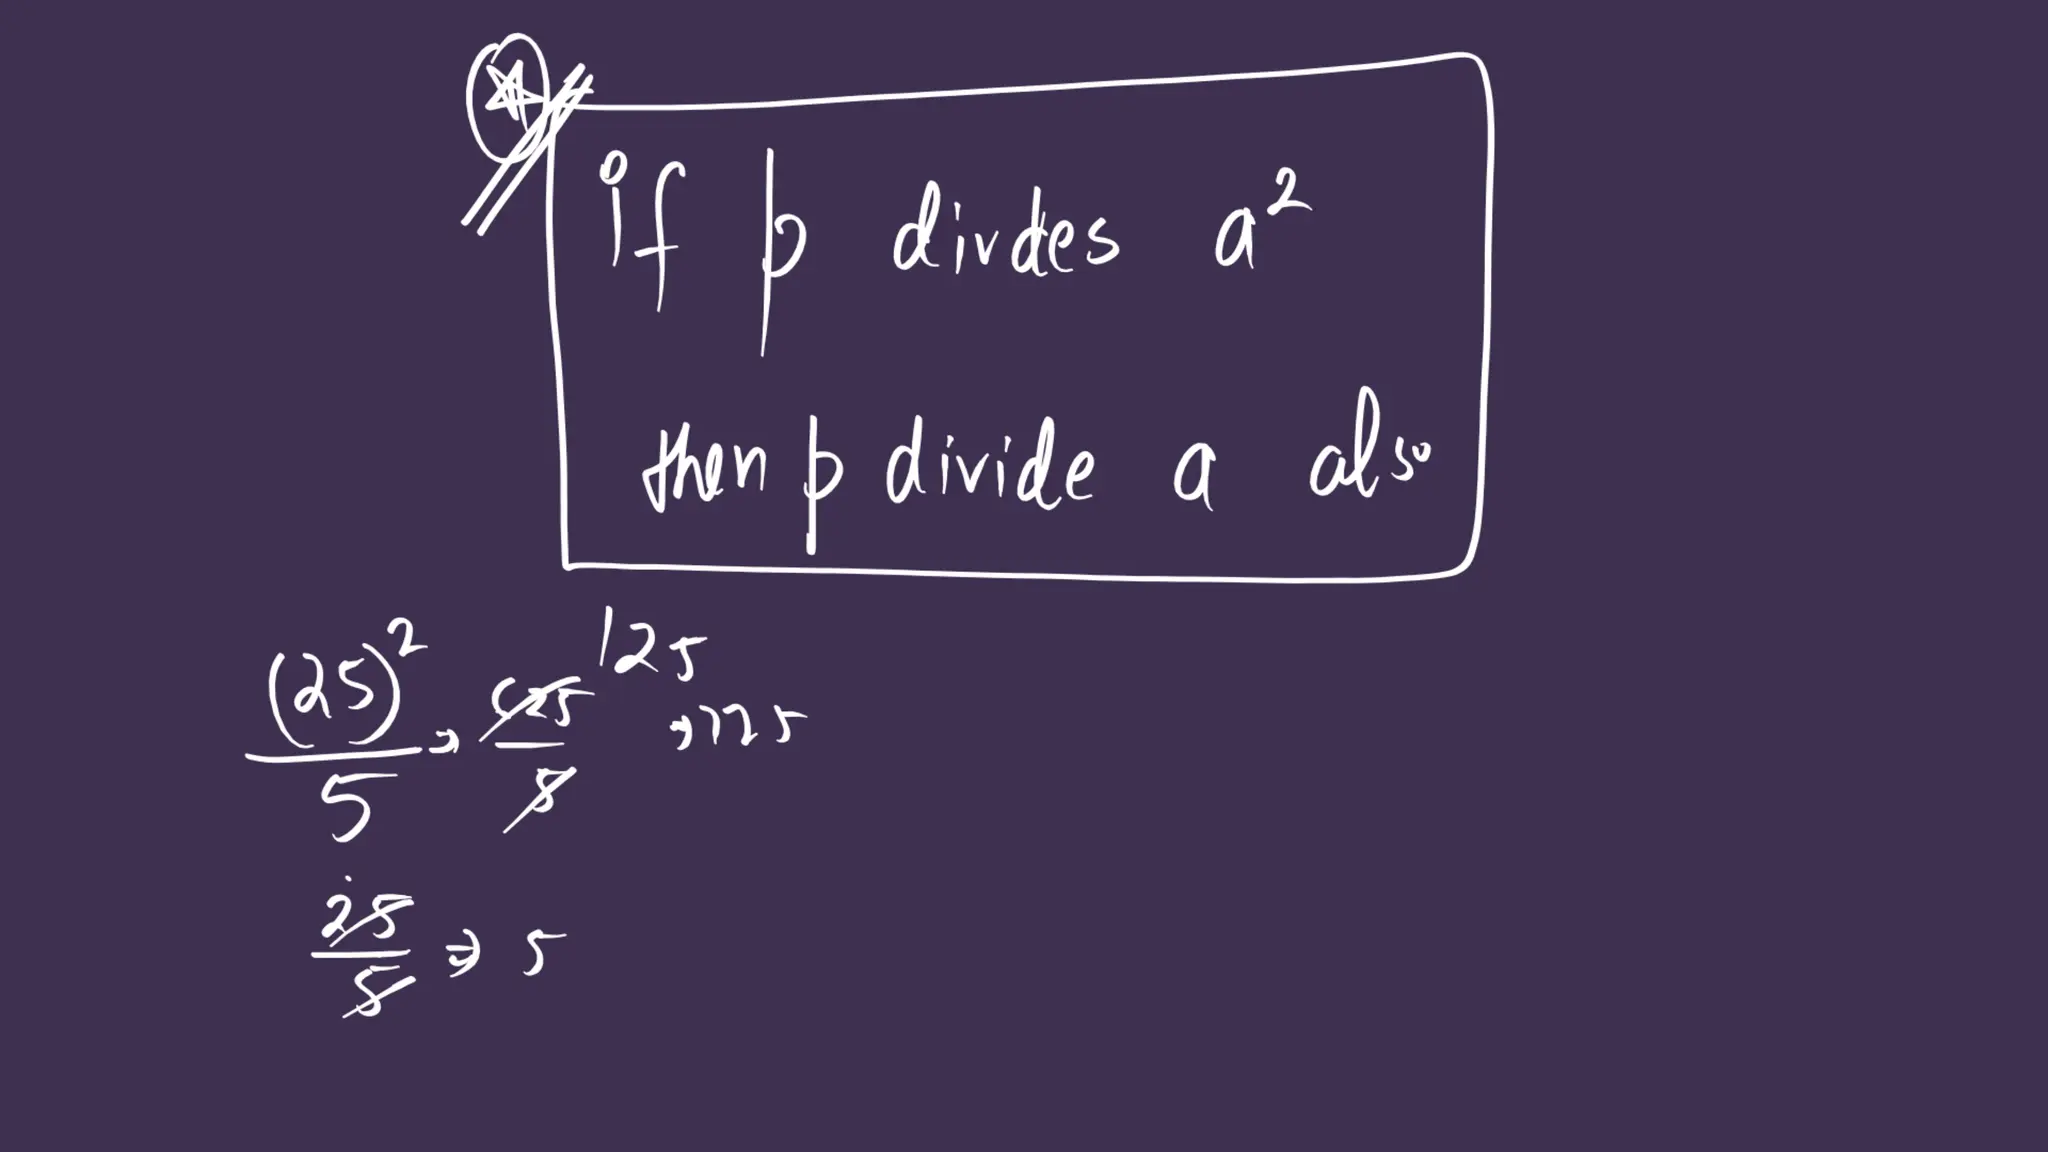 if p divdes a²
then p divide a also
(25)² / 5 → 625 / 5 125 ⇒ 125
25 / 5 ⇒ 5